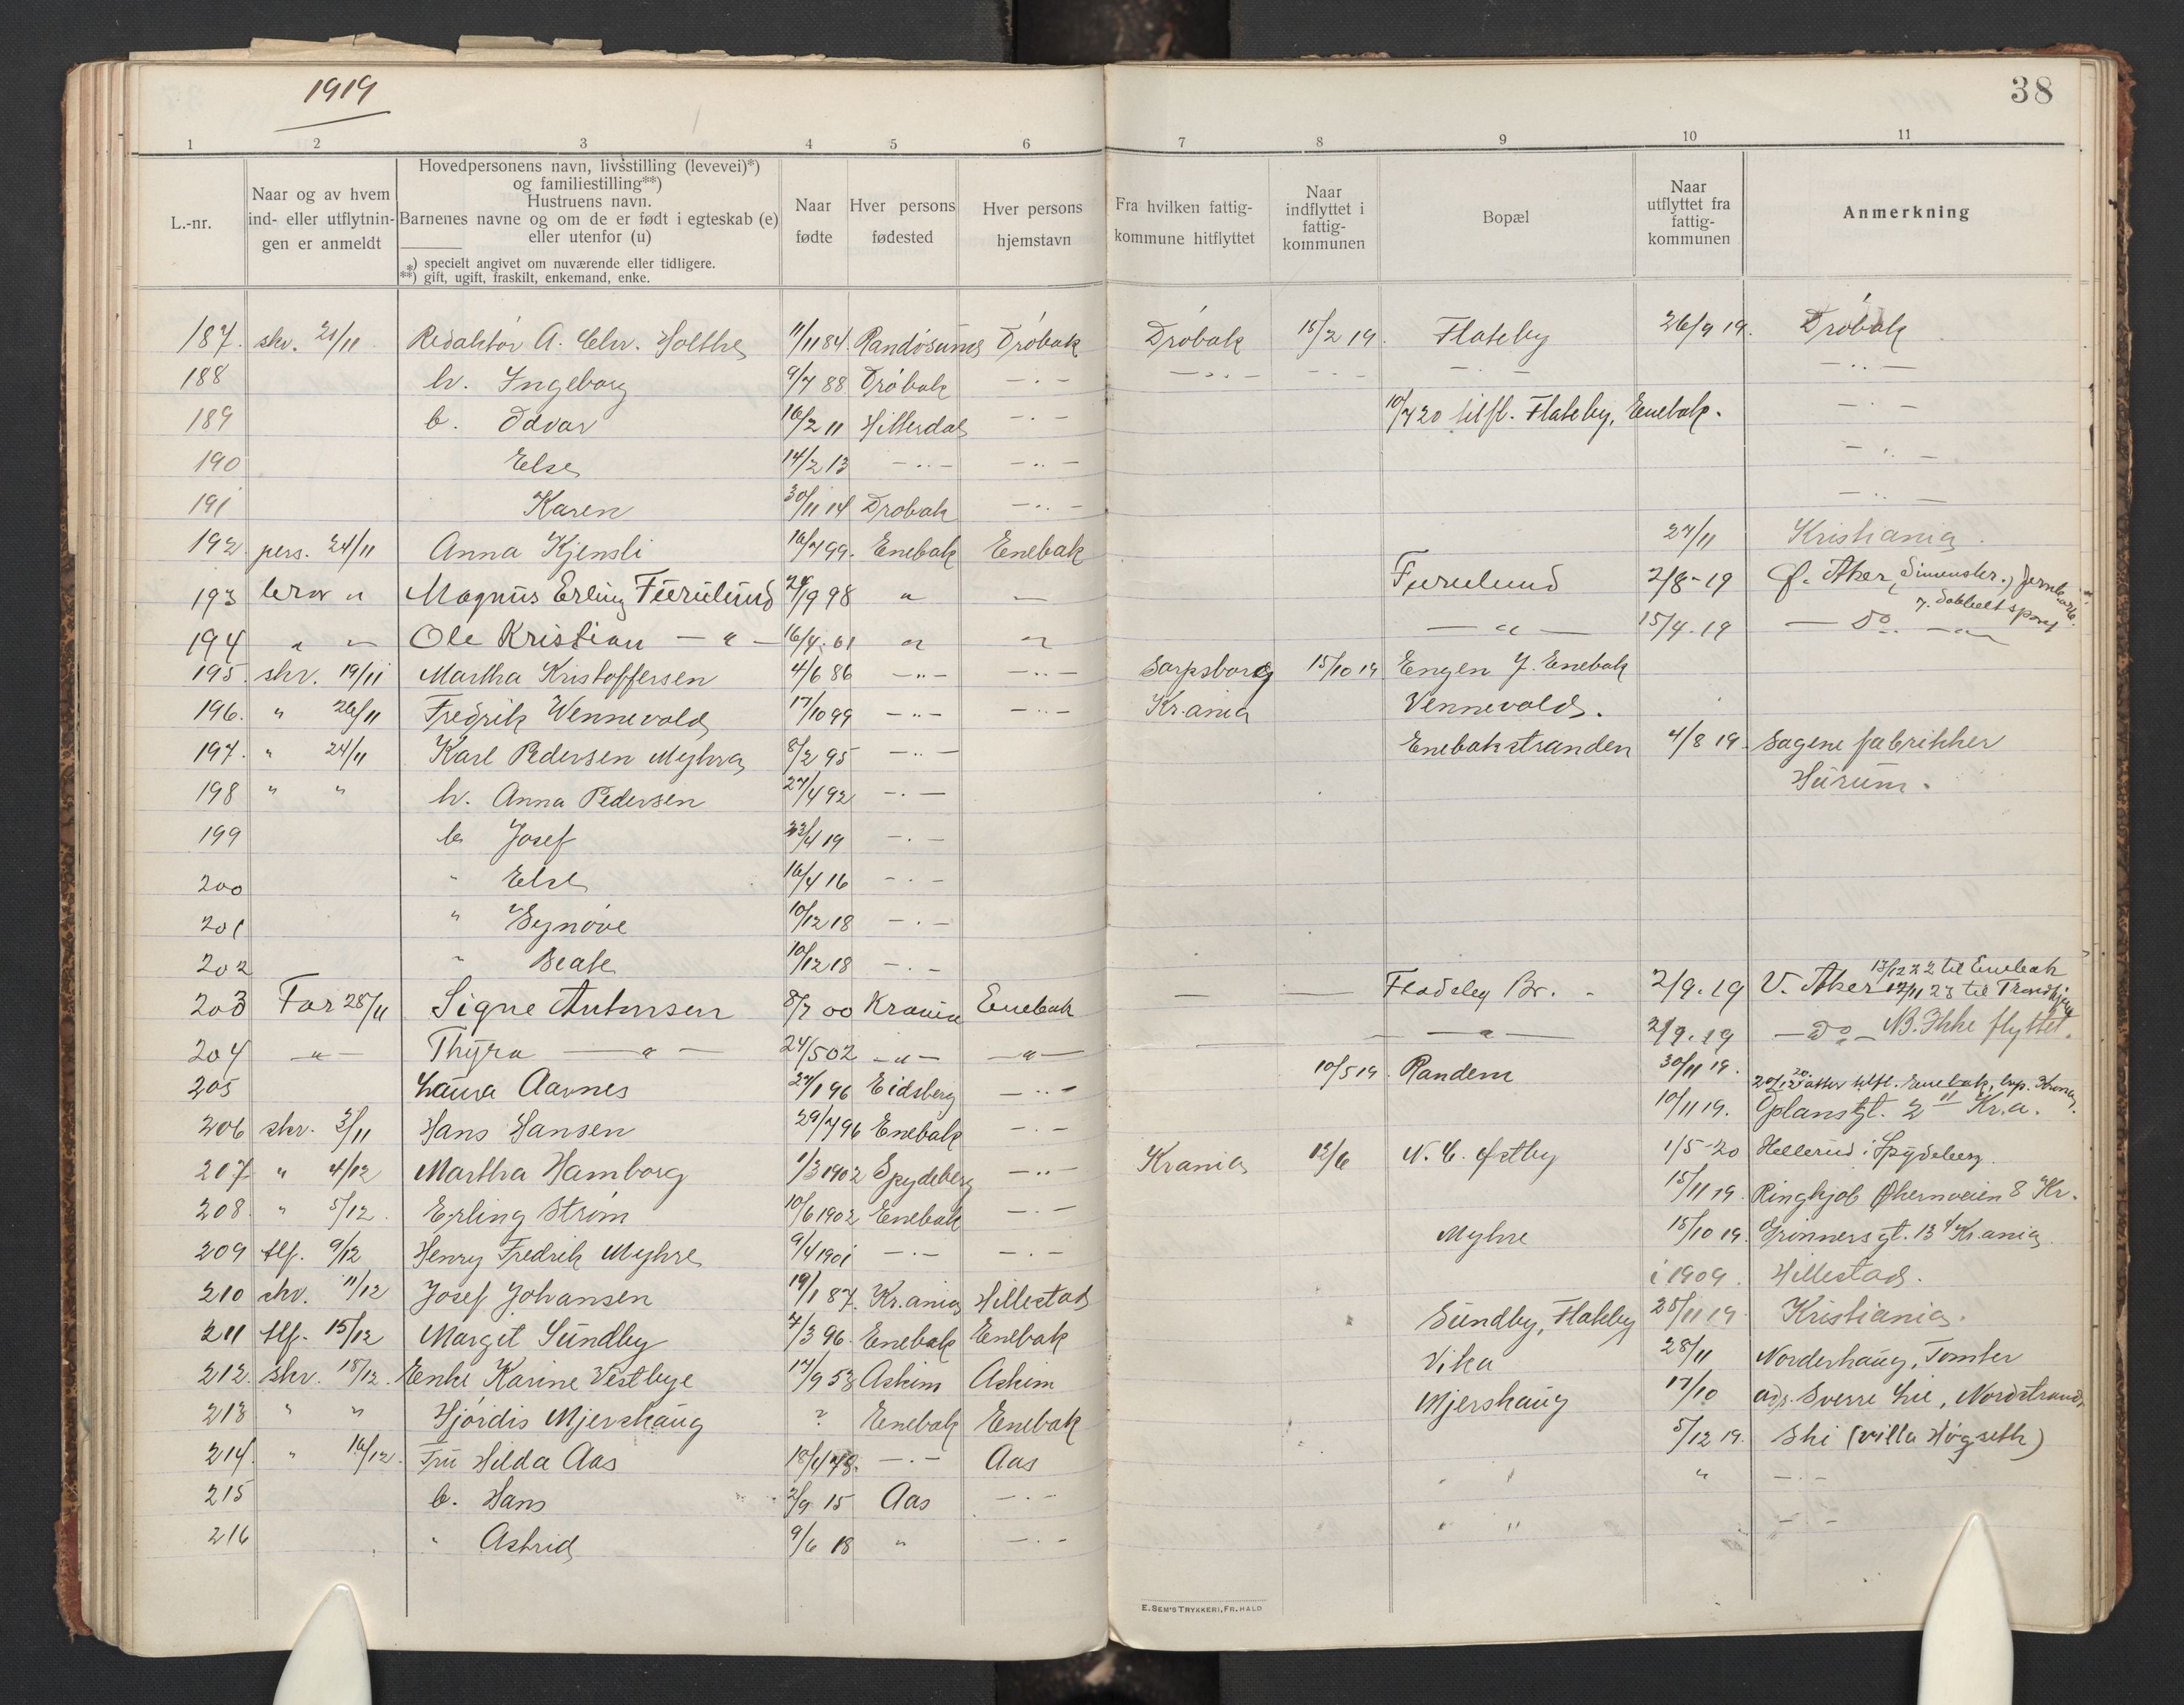 1919
38
1 2 3 4 5 6 7 8 9 10 11
L.-nr.
Naar og av hvem
ind- eller utflytnin-
gen er anmeldt
Hovedpersonens navn, livsstilling (levevei)*)
og familiestilling**)
Hustruens navn.
Barnenes navne og om de er født i egteskab (e)
eller utenfor (u)
*) specielt angivet om nuværende eller tidligere.
**) gift, ugift, fraskilt, enkemand, enke.
Naar
fødte
Hver persons
fødested
Hver persons
hjemstavn
Fra hvilken fattig-
kommune hitflyttet
Naar
indflyttet i
fattig-
kommunen
Bopæl
Naar
utflyttet fra
fattig-
kommunen
Anmerkning
187. skr. 21/11 Redaktør A. Chr. Holthe 11/11 84. Randøsund Drøbak Drøbak 15/2 19. Flateby 26/9 19. Drøbak
188 h. Ingeborg 9/7 88 Drøbak —·— —··— —·— —·— —··—
189 b. Odvar 16/2 11 Hitterdal —·— 10/7 20 tilfl. Flateby, Enebak. —·—
190 Else 14/2 13 —··— —··— —··—
191 Karen 30/11 14 Drøbak —··— —··—
192 pers. 24/11 Anna Kjensli 16/7 99. Enebak Enebak 27/11 Kristiania.
193 brev " Magnus Erling Furulund 24/9 98 " — Furulund 2/8-19 Ø. Aker (Simenskr.) Jernb.arb.
v. dobbelt spor
194 " " Ole Kristian —"— 16/4. 01 " " —"— 15/4.19 — Do. —
195. skr. 19/11 Martha Kristoffersen 4/6 86 —··— —··— Sarpsborg 15/10 19 Engen Y. Enebak
196. " 26/11 Fredrik Vennevold 17/10 99 —··— —··— Kr.ania Vennevold.
197. " 24/11 Karl Pedersen Myhra 8/2 95 —··— Enebakstranden 4/8 19. Sagene fabrikker
198 " " h. Anna Pedersen 27/4 92 —·— Hurum.
199 b. Josef 23/4 19 —·—
200 " Else 16/4 16 —·—
201 " Synøve 10/12 18 —·—
202 " Beate 10/12 18 —·—
203 Far 28/11 Signe Antonsen 8/7 00 Krania Enebak — Fladeby Br. 2/9.19 V. Aker 13/12 22 til Enebak
17/11 23 til Trondhjem
204 —"— Thyra —"— 24/5 02 —"— —"— —"— 2/9.19 —Do— NB. Ikke flyttet.
205 Laura Aarnes 27/1 96 Eidsberg —··— 10/5 19. Randem 30/11 19. 20/12 20 atter tilfl. Enebak,
206 skr. 3/11 Hans Hansen 29/7 96 Enebak —·— 10/11 19. Oplansgt. 2 II Kr.a.
207 " 4/12 Martha Hamborg 1/3 1902 Spydeberg —··— Krania 12/6 N. E. Østby 1/5-20 Hellerud i Spydeberg
208. " 5/12. Erling Strøm 10/6 1902 Enebak —·— 15/11 19. Ringkjøb Økernveien 8 Kr.
209 tlf. 9/12 Henry Fredrik Myhre 9/4 1901 —·— —·— Myhre 15/10 19. Grønners gt. 13 4 Kr.ania
210 skr. 11/12 Josef Johansen 19/1 87. Kr.ania Hillestad i 1909. Hillestad.
211 tlf. 15/12 Margit Sundby 7/3 96. Enebak Enebak Sundby, Flateby 25/11 19. Kristiania.
212. skr. 18/12. Enke Karine Vestbye 17/9 53 Askim Askim Vika 28/11 Norderhaug, Tomter
213 " " Hjørdis Mjerskaug ? Enebak Enebak Mjerskaug 17/10 adr. Sverre Lie, Nordstrand
214. " 16/12. Fru Hilda Aas 18/4 78. —·— Aas 5/12 19. Ski (villa Høgseth)
215 b. Hans 2/9 15 Aas —·— " —·—
216 " Astrid 9/6 18 " —·— —·—
E. SEM'S TRYKKERI, FR.HALD